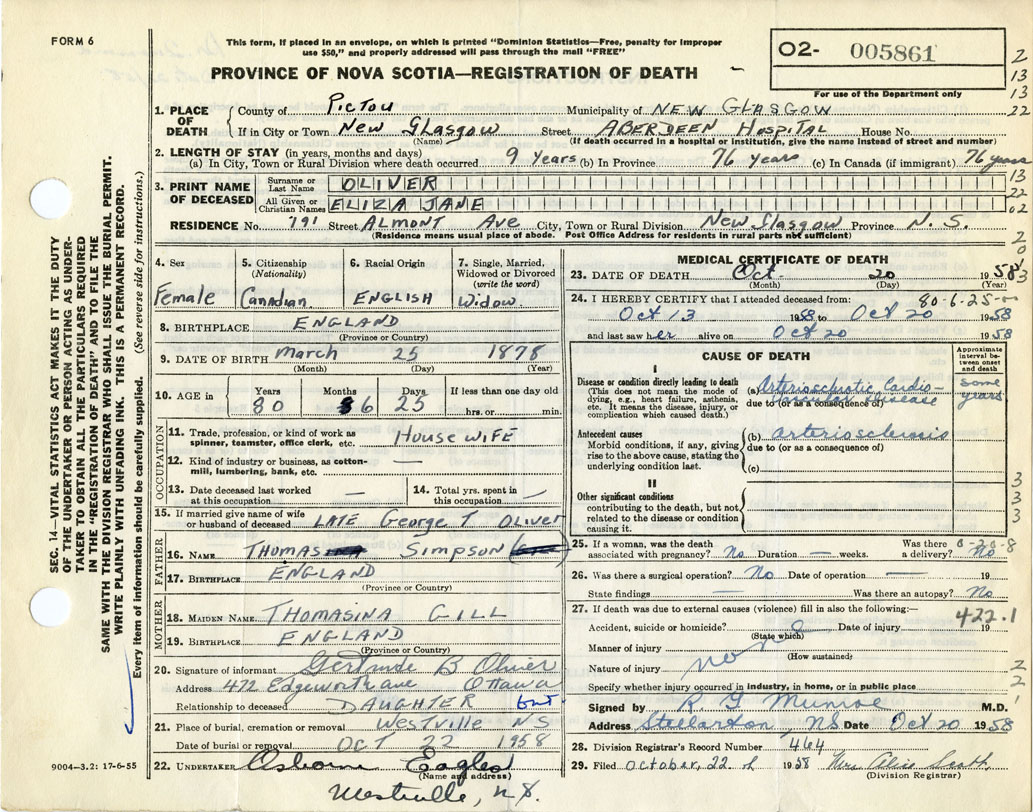 FORM 6
This form, if placed in an envelope, on which is printed "Dominion Statistics—Free, penalty for improper
use $50," and properly addressed will pass through the mail "FREE"
PROVINCE OF NOVA SCOTIA—REGISTRATION OF DEATH
O2- 005861
For use of the Department only
2
13
13
22
1. PLACE OF DEATH County of Pictou Municipality of NEW GLASGOW
If in City or Town New Glasgow Street ABERDEEN HOSPITAL House No.
(Name) (If death occurred in a hospital or institution, give the name instead of street and number)
2. LENGTH OF STAY (in years, months and days)
(a) In City, Town or Rural Division where death occurred 9 years (b) In Province 76 years (c) In Canada (if immigrant) 76 years
3. PRINT NAME OF DECEASED
Surname or Last Name OLIVER
13
22
All Given or Christian Names ELIZA JANE
02
RESIDENCE No. 791 Street ALMONT Ave City, Town or Rural Division New Glasgow Province N.S.
(Residence means usual place of abode. Post Office Address for residents in rural parts not sufficient)
2
0
3
SEC. 14—VITAL STATISTICS ACT MAKES IT THE DUTY
OF THE UNDERTAKER OR PERSON ACTING AS UNDER-
TAKER TO OBTAIN ALL THE PARTICULARS REQUIRED
IN THE "REGISTRATION OF DEATH" AND TO FILE THE
SAME WITH THE DIVISION REGISTRAR WHO SHALL ISSUE THE BURIAL PERMIT.
WRITE PLAINLY WITH UNFADING INK. THIS IS A PERMANENT RECORD.
Every item of information should be carefully supplied. (See reverse side for instructions.)
4. Sex
Female
5. Citizenship
(Nationality)
Canadian
6. Racial Origin
ENGLISH
7. Single, Married,
Widowed or Divorced
(write the word)
Widow
8. BIRTHPLACE ENGLAND
(Province or Country)
9. DATE OF BIRTH March 25 1878
(Month) (Day) (Year)
10. AGE in
Years Months Days If less than one day old
80 6 25 hrs. or min.
OCCUPATION
11. Trade, profession, or kind of work as
spinner, teamster, office clerk, etc. HOUSE WIFE
12. Kind of industry or business, as cotton-
mill, lumbering, bank, etc. —
13. Date deceased last worked
at this occupation —
14. Total yrs. spent in
this occupation —
15. If married give name of wife
or husband of deceased LATE George T Oliver
FATHER
16. NAME THOMAS SIMPSON
17. BIRTHPLACE ENGLAND
(Province or Country)
MOTHER
18. MAIDEN NAME THOMASINA GILL
19. BIRTHPLACE ENGLAND
(Province or Country)
20. Signature of informant Gertrude B Oliver
Address 472 Edgeworth ave Ottawa
Relationship to deceased DAUGHTER Ont
21. Place of burial, cremation or removal Westville NS
Date of burial or removal OCT 22 1958
22. UNDERTAKER Osborn Eagles
(Name and address)
Westville, N.S.
9004—3.2: 17-6-55
MEDICAL CERTIFICATE OF DEATH
23. DATE OF DEATH Oct 20 1958
(Month) (Day) (Year)
24. I HEREBY CERTIFY that I attended deceased from: 80-6-25
Oct 13 1958 to Oct 20 1958
and last saw her alive on Oct 20 1958
CAUSE OF DEATH
Approximate
interval be-
tween onset
and death
I
Disease or condition directly leading to death
(This does not mean the mode of
dying, e.g., heart failure, asthenia,
etc. It means the disease, injury, or
complication which caused death.)
(a) Arteriosclerotic Cardio-
vascular disease
due to (or as a consequence of)
some
years
Antecedent causes
Morbid conditions, if any, giving
rise to the above cause, stating the
underlying condition last.
(b) arteriosclerosis
due to (or as a consequence of)
(c)
II
Other significant conditions
contributing to the death, but not
related to the disease or condition
causing it.
3
3
3
25. If a woman, was the death
associated with pregnancy? No Duration — weeks. Was there
a delivery? No
26. Was there a surgical operation? No Date of operation — 19
State findings — Was there an autopsy? No
27. If death was due to external causes (violence) fill in also the following:— 422.1
Accident, suicide or homicide? Date of injury 19
(State which)
Manner of injury
(How sustained)
Nature of injury no
Specify whether injury occurred in industry, in home, or in public place
2
2
1
Signed by R G Munroe M.D.
Address Stellarton, NS Date Oct 20 1958
28. Division Registrar's Record Number 464
29. Filed October, 22 1958 Mrs Alice
(Division Registrar)